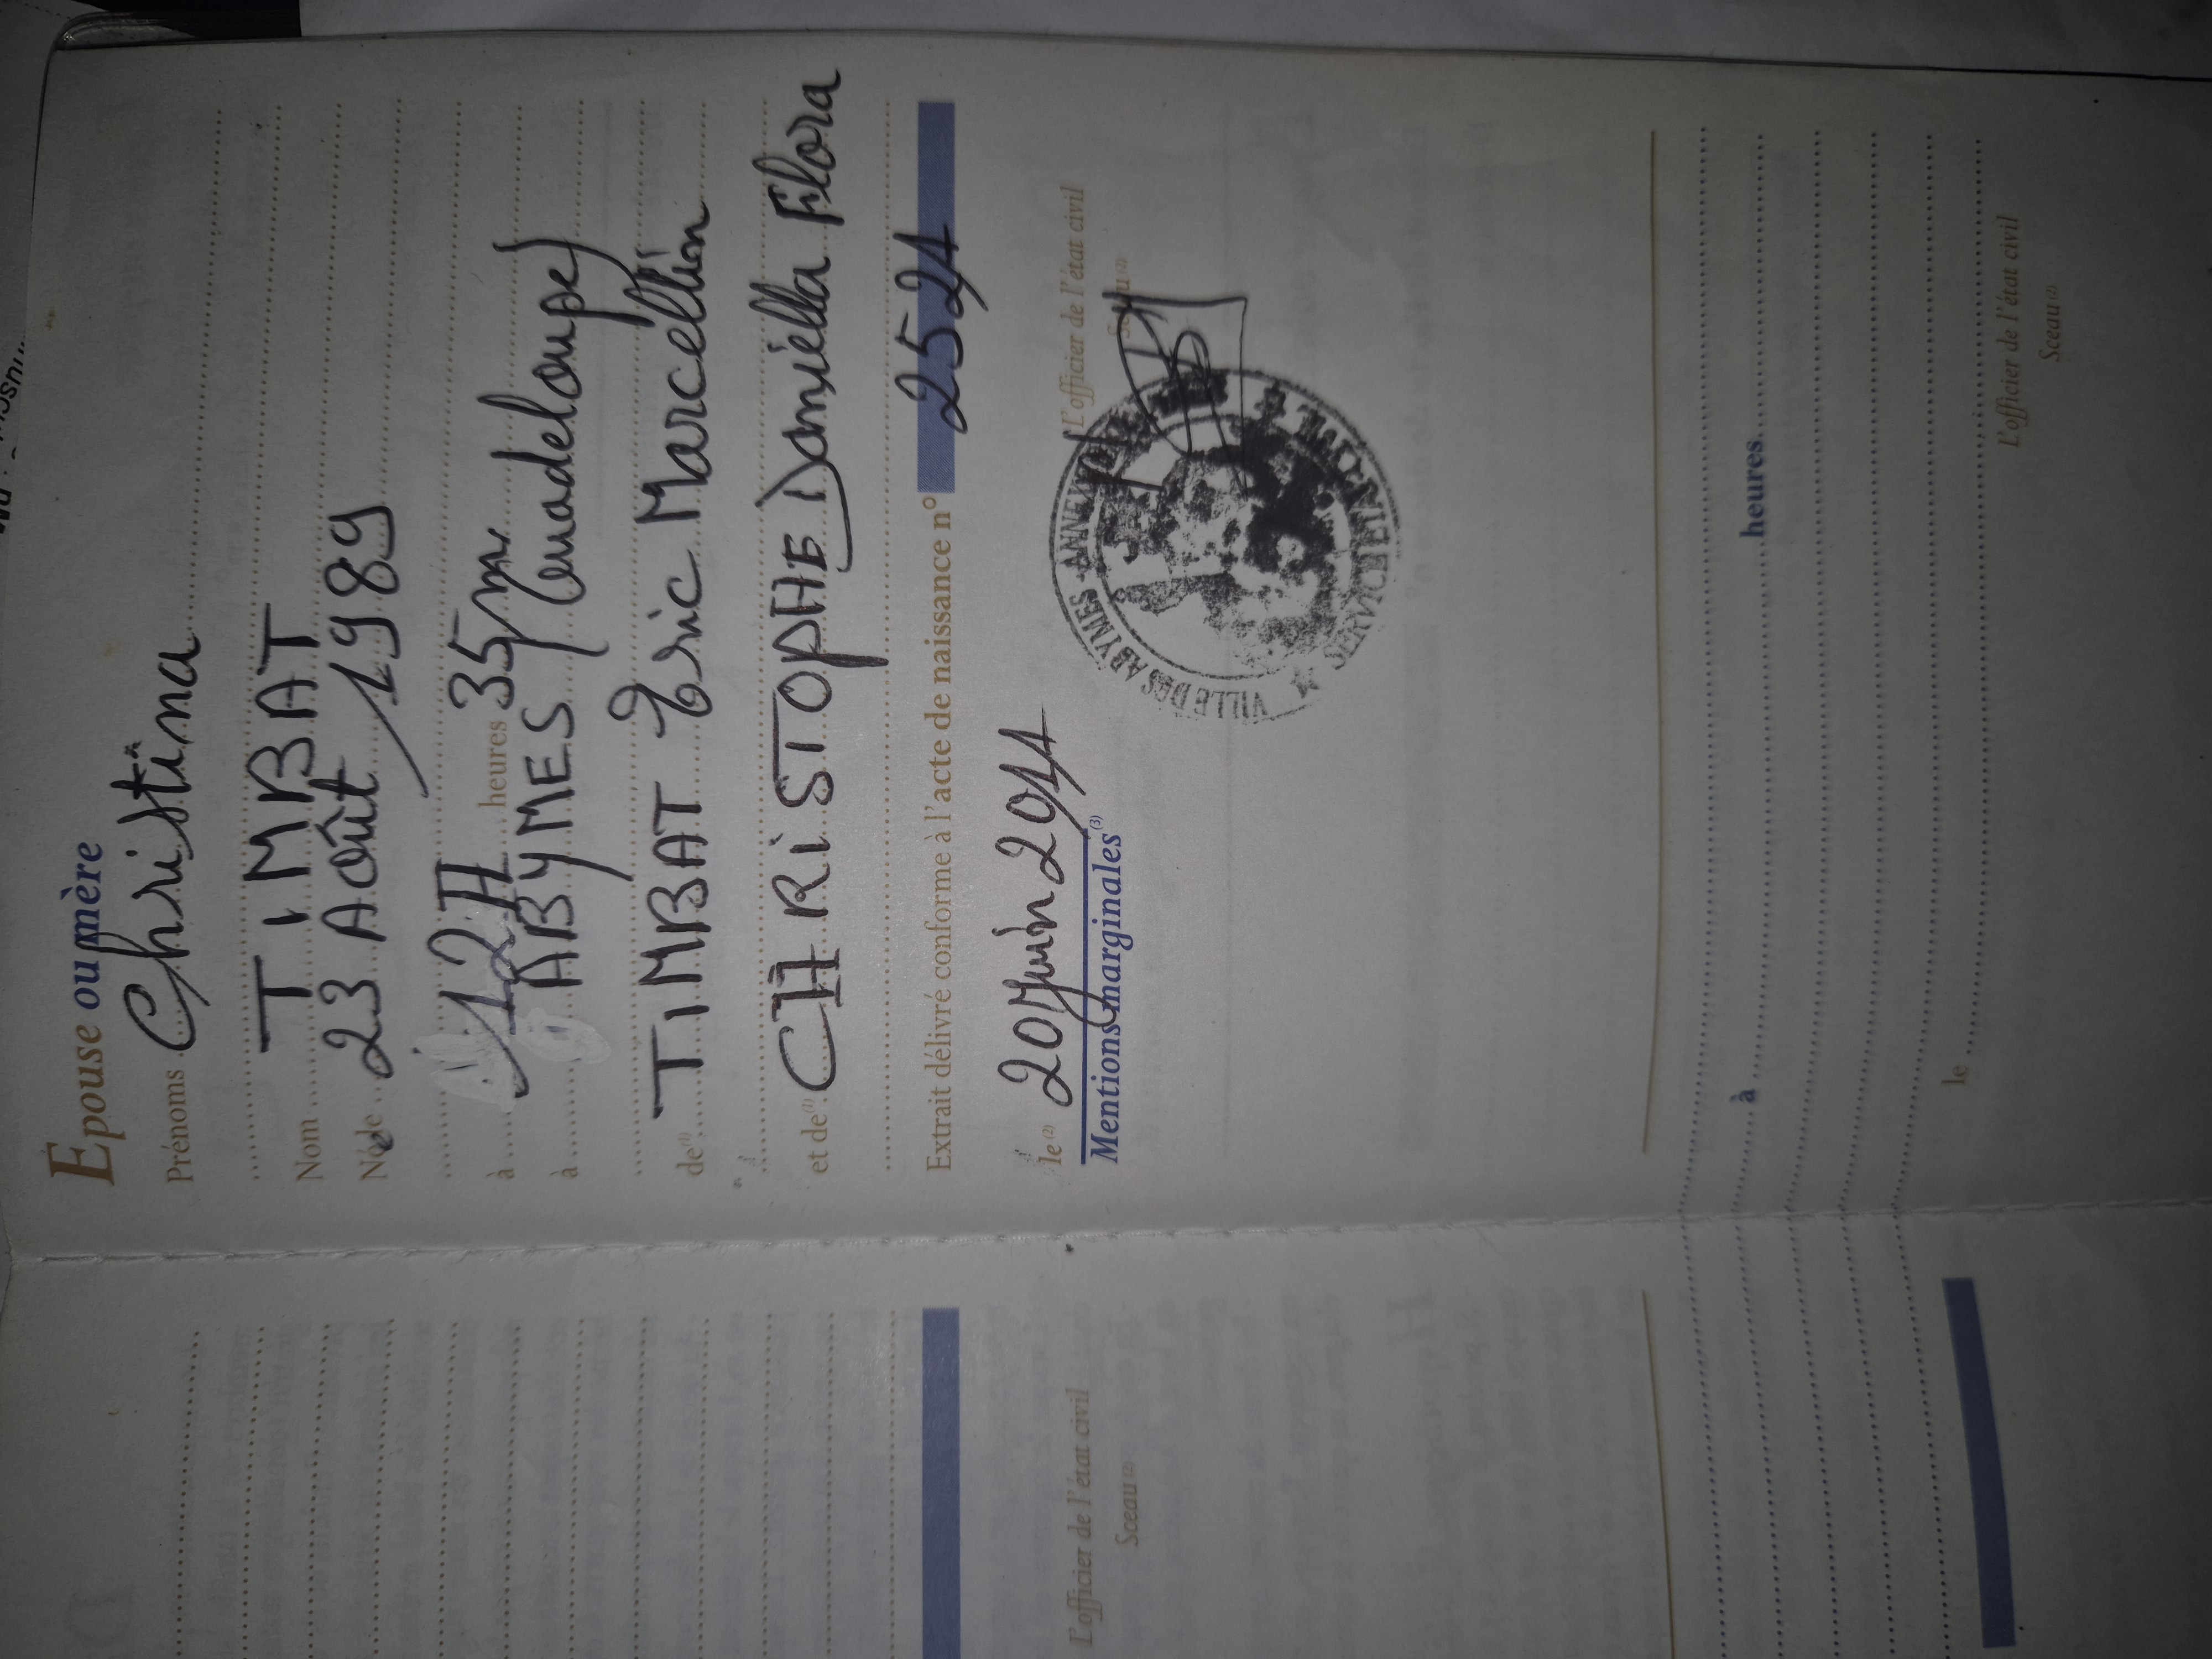 Epouse ou mère
Prénoms Christina
Nom TIMBAT
Née le 23 Août 1989
à 12H heures 35mn
à ABYMES (Guadeloupe)
de(1) TIMBAT Eric Marcellin
et de(1) CHRISTOPHE Daniella Flora
Extrait délivré conforme à l'acte de naissance n° 2524
le(2) 20 juin 2014
L'officier de l'état civil
Sceau(2)
Mentions marginales(3)
VILLE DES ABYMES ANNEXE
SERVICE ETAT
à heures
le
L'officier de l'état civil
Sceau(2)
L'officier de l'état civil
Sceau(2)